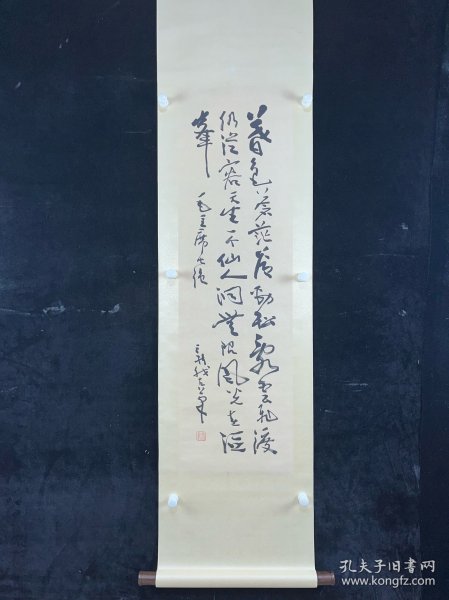 暮色苍茫看劲松乱云飞渡
仍从容天生一个仙人洞无限风光在险
峰 毛主席七绝
孔夫子旧书网
www.kongfz.com